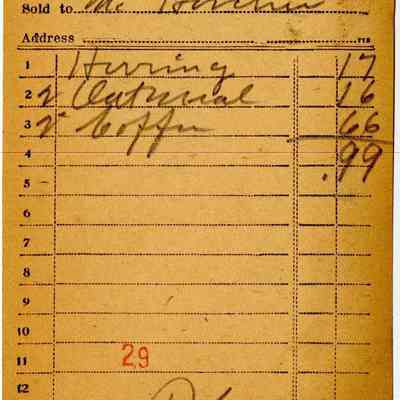 Sold to Mr.
Address
1 Herring 17
2 2 Oatmeal 16
3 2 Coffee 66
4 .99
5
6
7
8
9
10
11 29
12